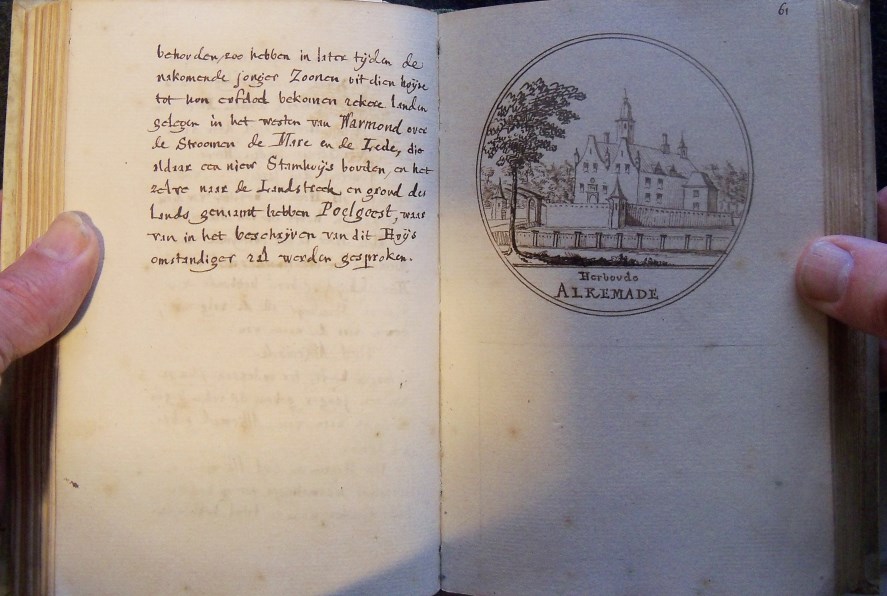 behorden, zoo hebben in later tijden de
nakomende jonger Zoonen uit dien huijse
tot hun erfdeel bekomen zekere landen
gelegen in het westen van Warmond over
de Stroomen de Mare en de Lede, die
aldaar een niew Stamhuijs bouden, en het
zelve naar de Landstreek en grond des
lands genaamt hebben Poelgeest, waar
van in het beschrijven van dit Huijs
omstandiger zal werden gesproken.
61
Herboude
ALKEMADE